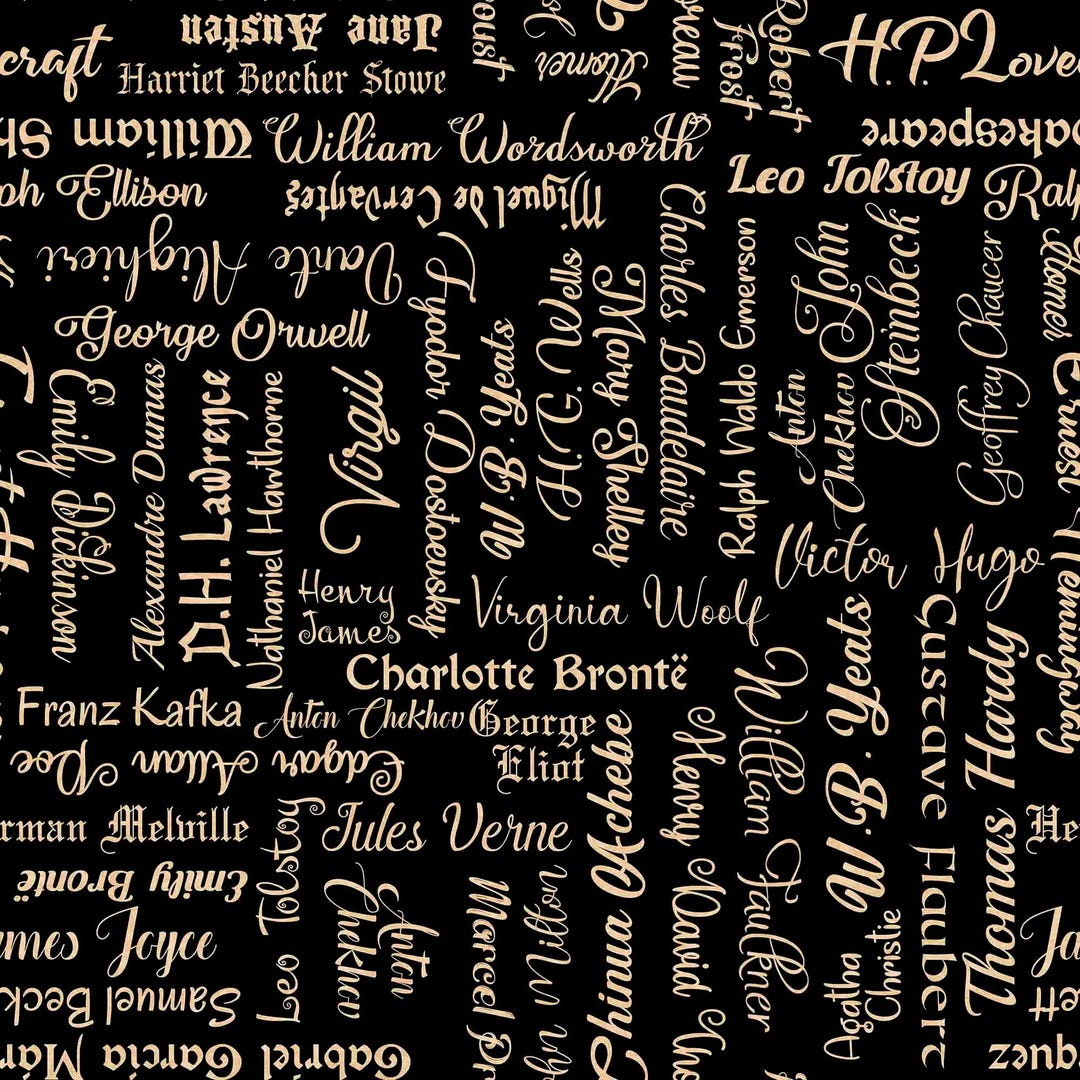 craft
Jane Austen
oust
Homer
reau
Robert
Frost
H.P Love
Harriet Beecher Stowe
William Sh
William Wordsworth
akespeare
ph Ellison
Miguel de Cervantes
Leo Tolstoy
Ral
Dante Alighieri
Fyodor Dostoevsky
H.G. Wells
Mary Shelley
Charles Baudelaire
Ralph Waldo Emerson
John
Steinbeck
Geoffrey Chaucer
Homer
George Orwell
Emily Dickinson
Alexandre Dumas
D.H. Lawrence
Nathaniel Hawthorne
Virgil
W.B. Yeats
Anton
Chekhov
Ernest Hemingway
Victor Hugo
Henry
James
Virginia Woolf
Charlotte Brontë
Franz Kafka
Anton Chekhov
George
Eliot
William Faulkner
W.B. Yeats
Gustave Flaubert
Thomas Hardy
Edgar Allan Poe
Chinua Achebe
Henry David Tho
rman Melville
Leo Tolstoy
Jules Verne
He
Emily Brontë
Anton
Chekhov
Marcel Pr
ohn Milton
Agatha
Christie
ames Joyce
Ja
Samuel Beck
ett
Gabriel Garcia Már
quez